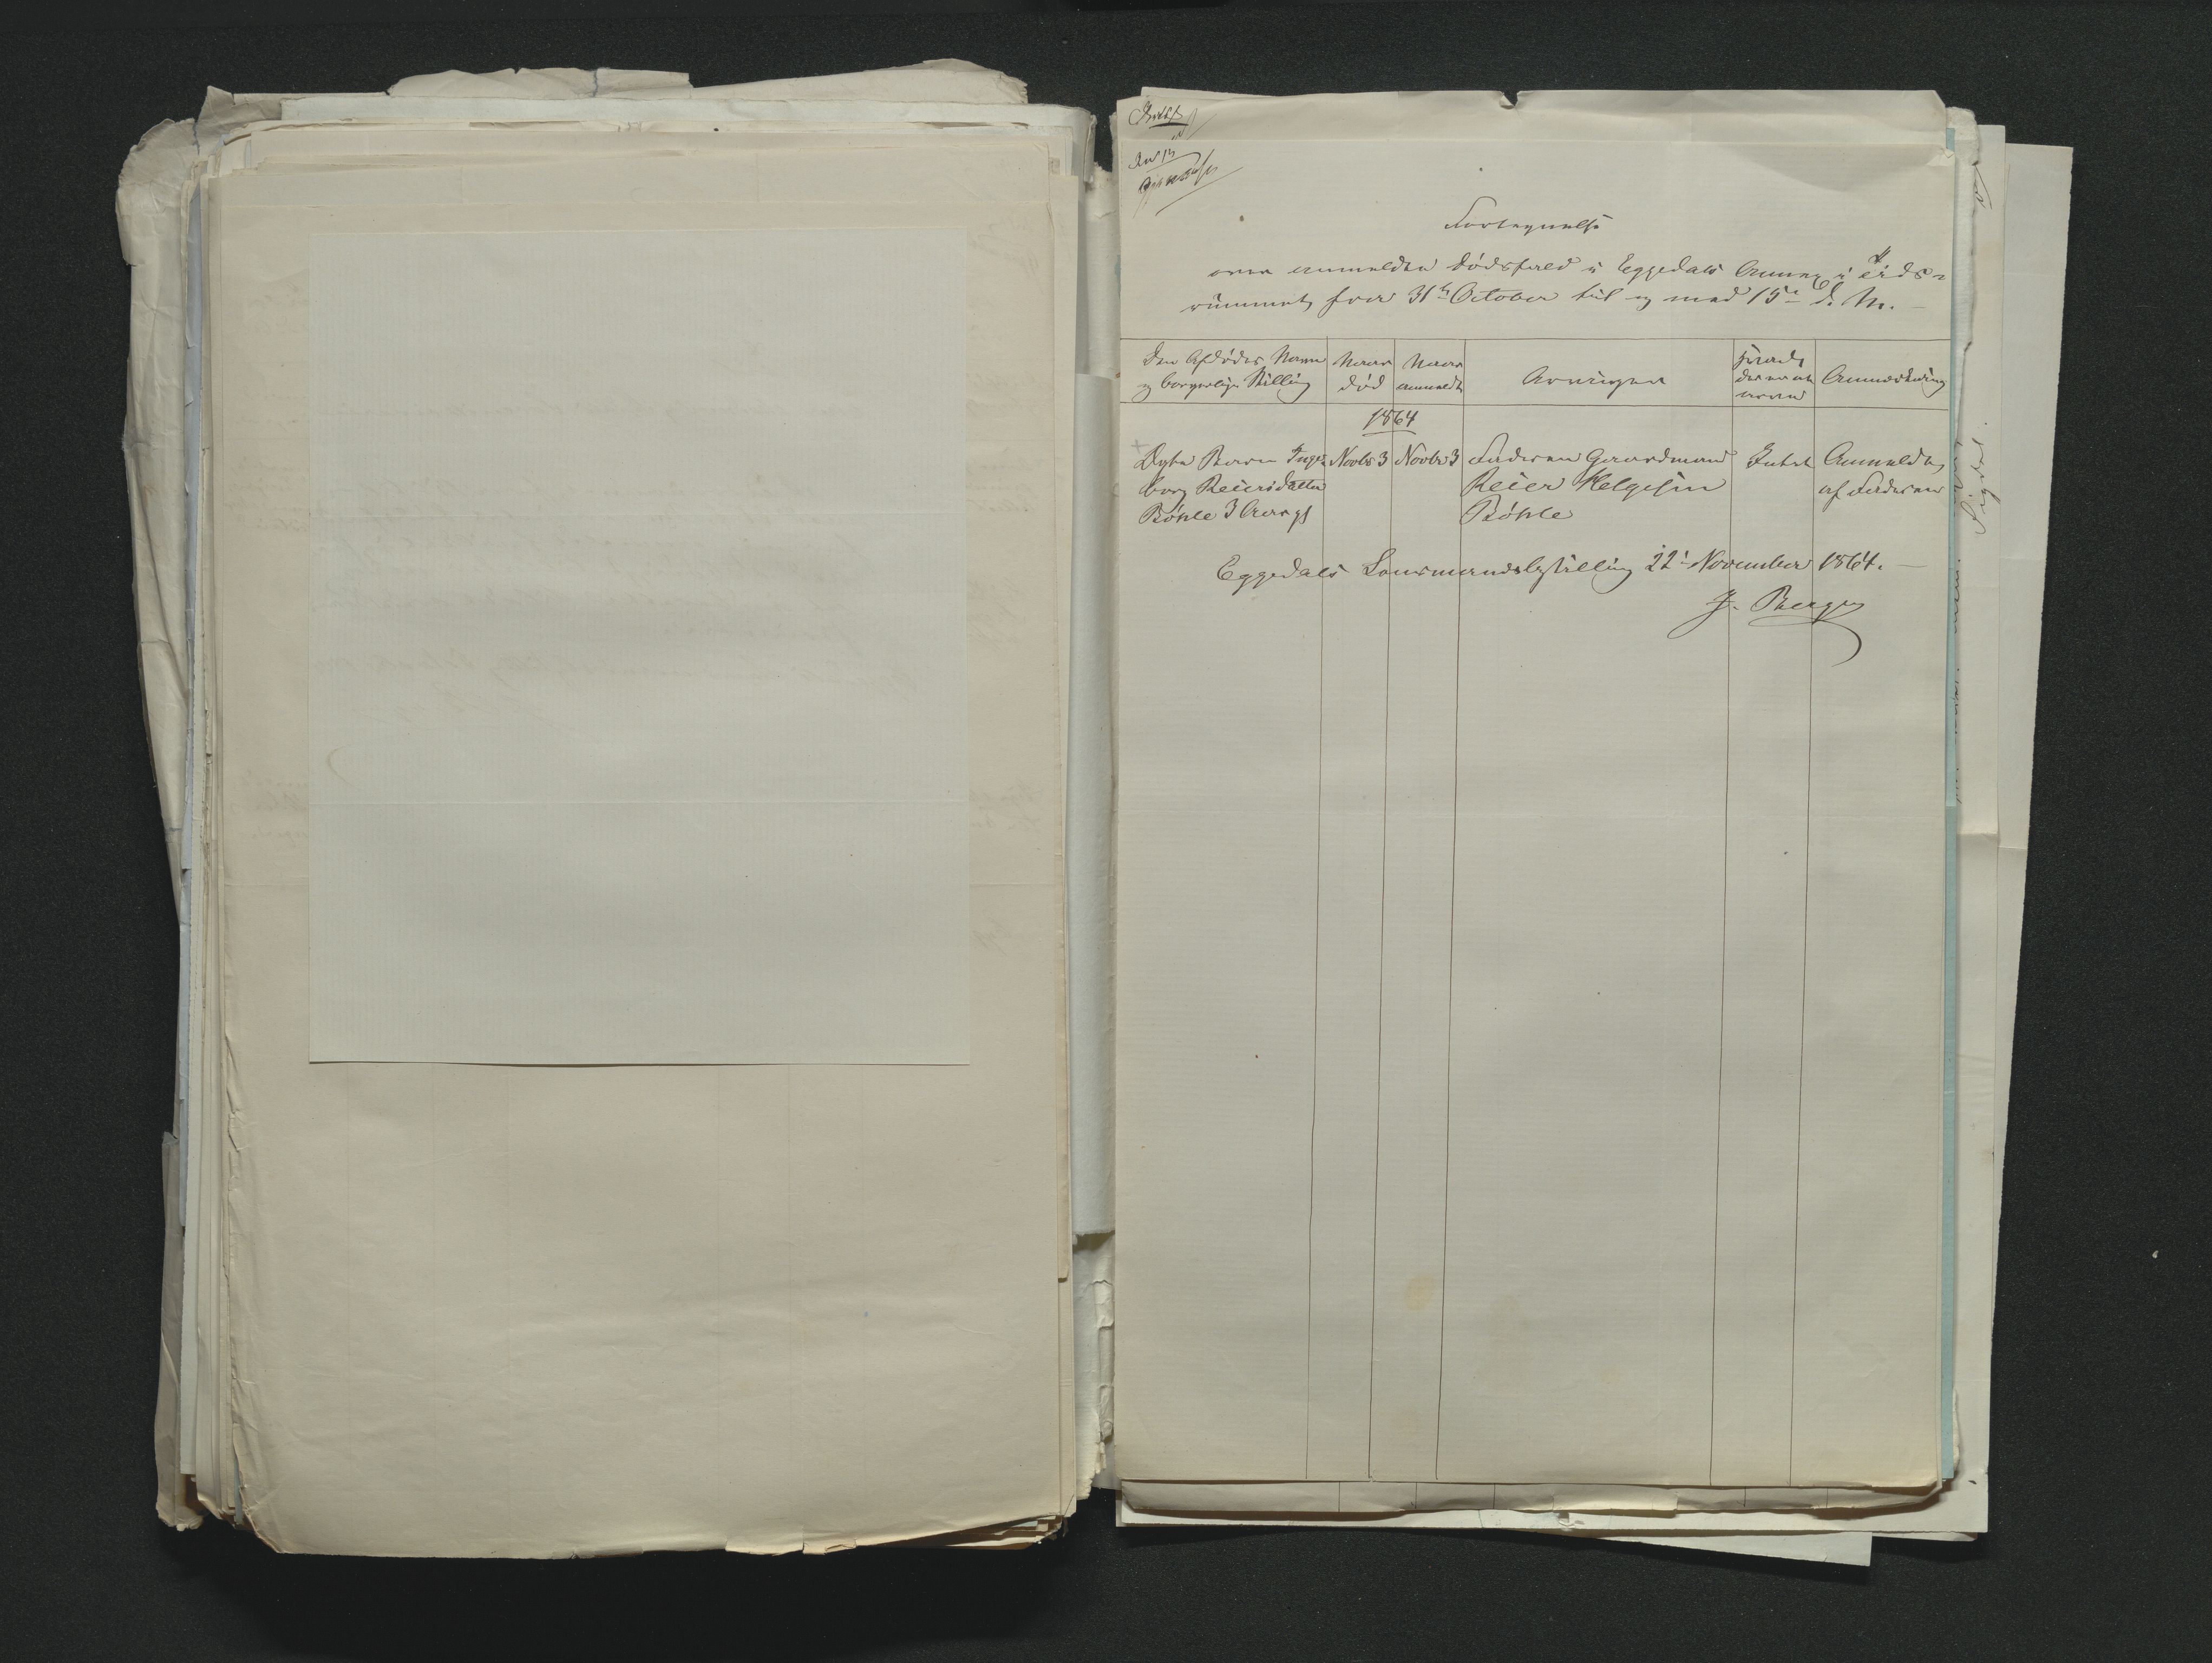 Fortegnelse
over anmeldte Dødsfald i Eggedals Annex i Tids-
rummet fra 31te October til og med 15de d. M. —
Den Afdødes Navn
og borgerlige Stilling
Naar
død
Naar
anmeldt
Arvinger
Hvad
der er at
arve
Anmærkning
1864
Døbte Barn Inge-
borg Reiersdatter
Bøhle 3 Aar gl
Novbr 3
Novbr 3
Faderen Gaardmand
Reier Helgesen
Bøhle
Intet
Anmeldt
af Faderen
Eggedals Lensmandsbestilling 22de November 1864. —
J. Berge
Sigdal.